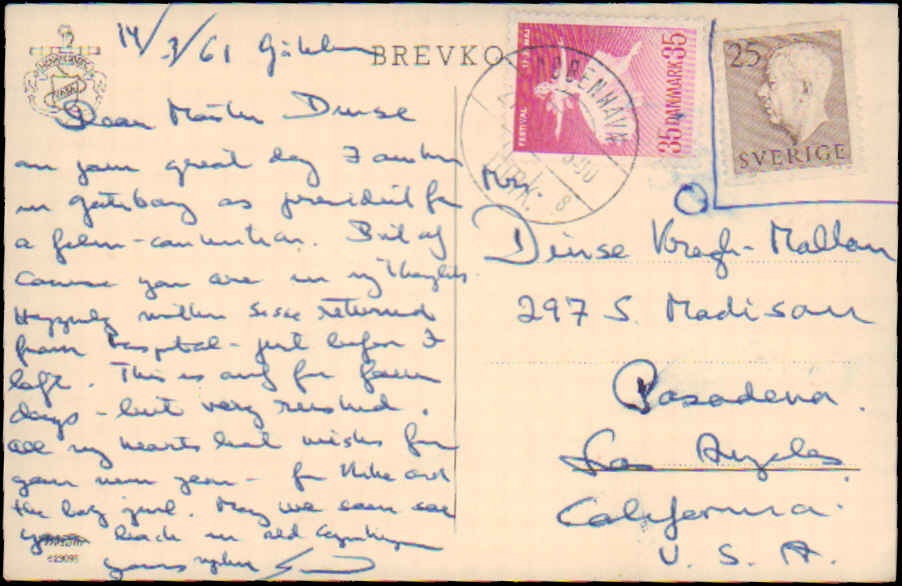 14/3/61 Göteborg
BREVKO
Dear Mother Denise
on your great day I am
in Göteborg as president for
a film-convention. But of
course you are in my thoughts
Happily mother Sisse returned
from hospital - just before I
left. This is only for few
days - but very rushed.
All my hearts best wishes for
your new year - for Mike and
the big girl. May we soon see
you back in old Copenhagen
yours
Mrs
297 S. Madison
Pasadena.
Los Angeles
California.
U.S.A.
FESTIVAL
DANMARK 35
35
KØBENHAVN
OMK.
8
25
SVERIGE